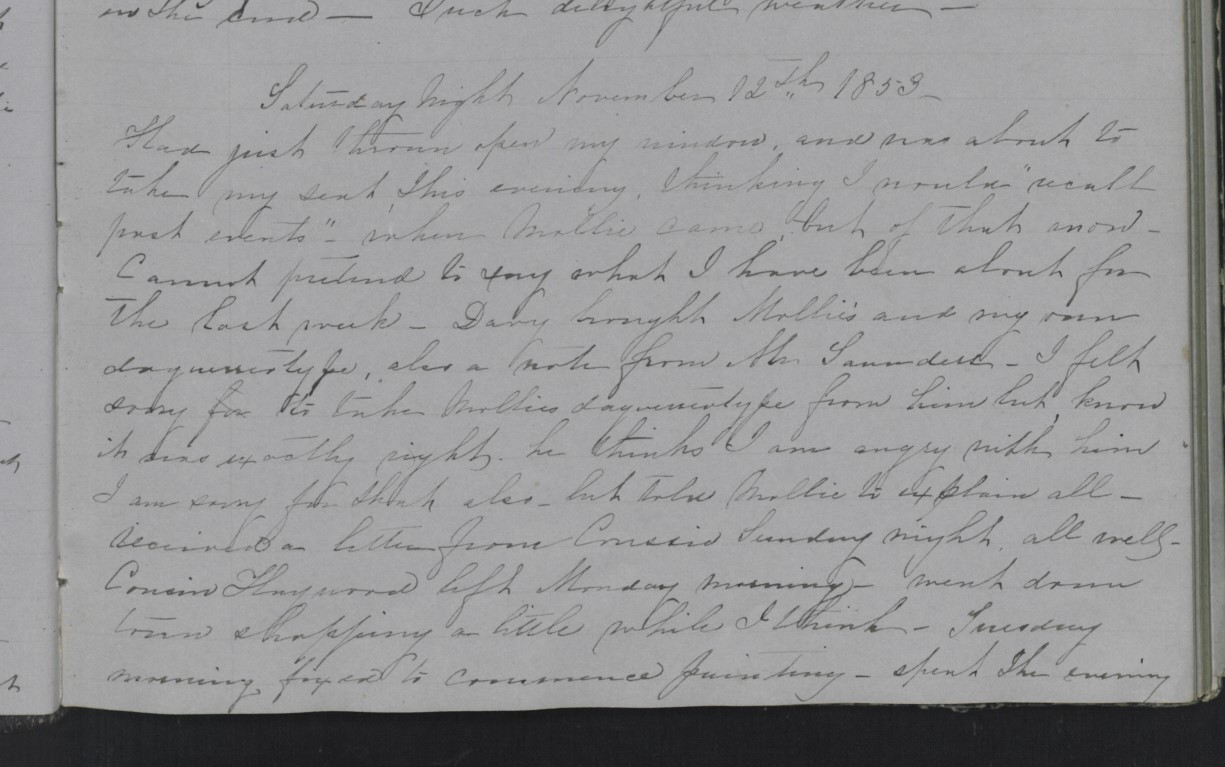 in the end — Such delightful weather —
Saturday Night November 12th 1853 —
Had just thrown open my window, and was about to
take my seat this evening, thinking I would "recall
past events" — when Mollie came, but of that anon —
Cannot pretend to say what I have been about for
the last week — Davy brought Mollie's and my own
daguerreotype, also a note from Mr Saunders — I felt
sorry for to take Mollies daguerreotype from him but know
it was exactly right. he thinks I am angry with him
I am sorry for that also — but told Mollie to explain all —
received a letter from Cousin Sunday night, all well —
Cousin Haywood left Monday morning — went down
town shopping a little while I think — Tuesday
morning fixed to commence painting — spent the evening